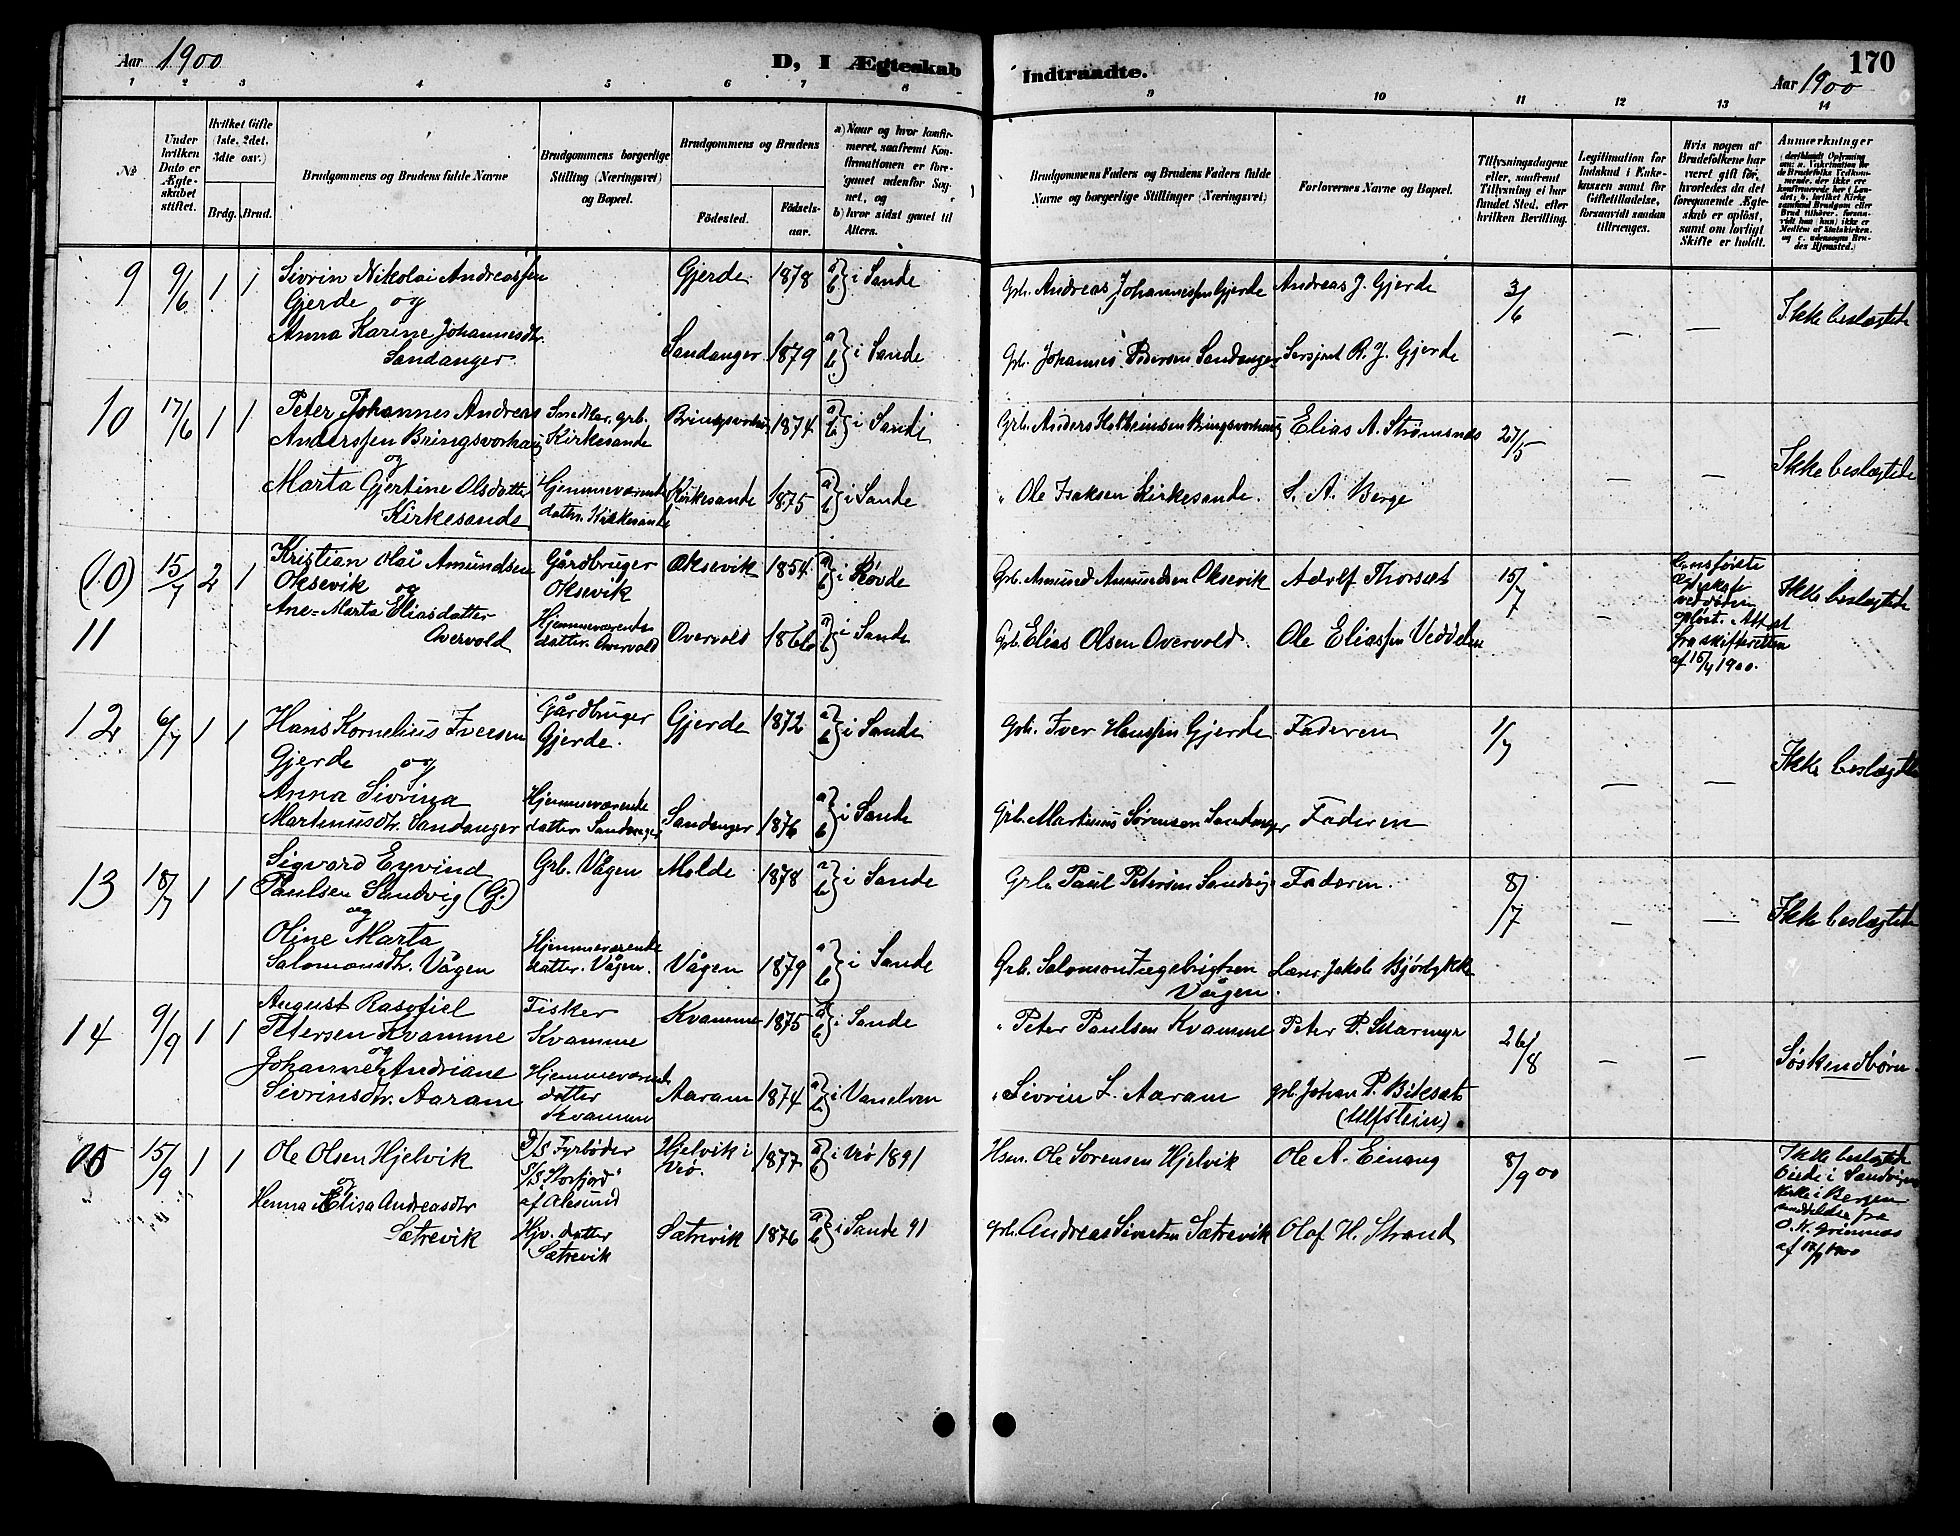 Aar 1900
D, I Ægteskab Indtraadte.
170
Aar 1900
1 2 3 4 5 6 7 8 9 10 11 12 13 14
№
Under hvilken Dato er Ægteskabet stiftet.
Hvilket Gifte (1ste, 2det, 3die osv.)
Brdg. Brud.
Brudgommens og Brudens fulde Navne
Brudgommens borgerlige Stilling (Næringsvei) og Bopæl.
Brudgommens og Brudens
Fødested. Fødselsaar.
a) Naar og hvor konfirmeret, saafremt Konfirmationen er foregaaet udenfor Sognet, og
b) hvor sidst gaaet til Alters.
Brudgommens Faders og Brudens Faders fulde Navne og borgerlige Stillinger (Næringsvei)
Forlovernes Navne og Bopæl.
Tillysningsdagene eller, saafremt Tillysning ei har fundet Sted, efter hvilken Bevilling.
Legitimation for Indskud i Enkekassen samt for Giftetilladelse, forsaavidt saadan tiltrænges.
Hvis nogen af Brudefolkene har været gift før, hvorledes da det foregaaende Ægteskab er opløst, samt om lovligt Skifte er holdt.
Anmerkninger
9 9/6 1 1 Sivrin Nikolai Andreassen Gjerde 1878 a b } i Sande Grb. Andreas Johannessen Gjerde Andreas J. Gjerde 3/6 — — Ikke beslægtede
Gjerde og
Anna Karine Johannesdtr. Sandanger 1879 a b } i Sande Grb. Johannes Pedersen Sandanger Sersjant R. J. Gjerde
Sandanger
10 17/6 1 1 Peter Johannes Andreas Smed Kar. grb. Bringsvorhaug 1874 a b } i Sande Grb. Anders Kolbeinsen Bringsvorhaug Elias A. Strømsnes 27/5 — — Ikke beslægtede
Anderssen Bringsvorhaug Kirkesande
og
Marta Gjertine Olsdatter Hjemmeværende Kirkesande 1875 a b } i Sande " Ole Isaksen Kirkesande. S. A. Berge
Kirkesande dattr. Kirkesande
(10) 15/7 2 1 Kristian Olai Amundsen Gårdbruger Oksevik 1854 a b } i Røvde Grb. Amund Amundsen Oksevik Adolf Thorsæt 15/7 — Ikke beslægtede
Oksevik og Oksevik
11 Ane-Marta Eliasdatter Hjemmeværende Overvold 1866 a b } i Sande Grb. Elias Olsen Overvold. Ole Eliassen Veddelen
Overvold datter. Overvold
ægteskab
ved døden
opløst. Attest
fra skifteretten
af 15/4 1900.
12 6/7 1 1 Hans Kornelius Iversen Gårdbruger Gjerde 1872 a b } i Sande Grb. Iver Hanssen Gjerde Faderen 1/7 — — Ikke beslægtede
Gjerde og Gjerde.
Anna Sivrina Hjemmeværende Sandanger 1876 a b } i Sande Grb. Martinus Sørensen Sandanger Faderen
Martinusdtr. Sandanger datter Sandanger
13 18/7 1 1 Sigvard Eyvind Grb. Vågen Molde 1878 a b } i Sande Grb. Paul Petersen Sandvig Faderen. 8/7 — — Ikke beslægtede
Paulsen Sandvig (G.)
og
Oline Marta Hjemmeværende Vågen 1879 a b } i Sande Grb. Salomon Ingebrigtsen Lærer Jakob Bjørlykke
Salomonsdtr. Vågen datter. Vågen. Vågen.
14 9/9 1 1 August Rasotiel Fisker Kvamme 1875 a b } i Sande " Peter Paulsen Kvamme Peter P. Skarmyr 26/8 — — Søskendbørn
Petersen Kvamme Kvamme
og
Johanne Andriane Hjemmeværende Aaram 1874 a b } i Vanelven " Sivrin L. Aaram grb. Johan P. Eiksæt
Sivrinsdtr. Aaram datter Kvamme (Ulfstein)
15 15/9 1 1 Ole Olsen Hjelvik D/S Fyrbøder Hjelvik i Vrø. 1877 a b } i Vrø 1891 Hsm. Ole Sørensen Hjelvik Ole A. Einang 8/9 00
og S/S "Storfjord" af Ålesund
Henna Elisa Andreasdtr Hjv. datter Sætrevik 1876 a b } i Sande 91 grb. Andreas Sivertsen Sætrevik Olaf H. Strand
Sætrevik Sætrevik
Ikke beslægtede
Viede i Sandvigens
kirke i Bergen
meddelelse fra
O. K. Grimnes